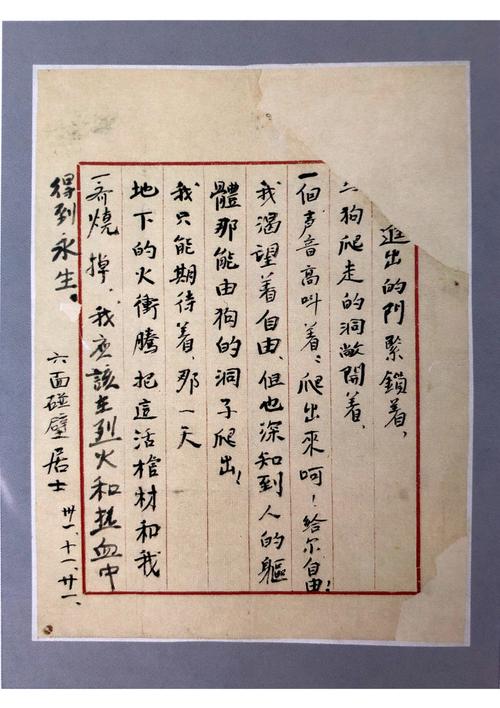 進出的門緊鎖着,
狗爬走的洞敞開着,
一個声音高叫着:爬出來呵!給尔自由!
我渴望着自由,但也深知到人的軀
體那能由狗的洞子爬出!
我只能期待着,那一天
地下的火衝騰把這活棺材和我
一齐燒掉,我应該在烈火和热血中
得到永生。
六面碰壁居士
卅一、十一、廿一、